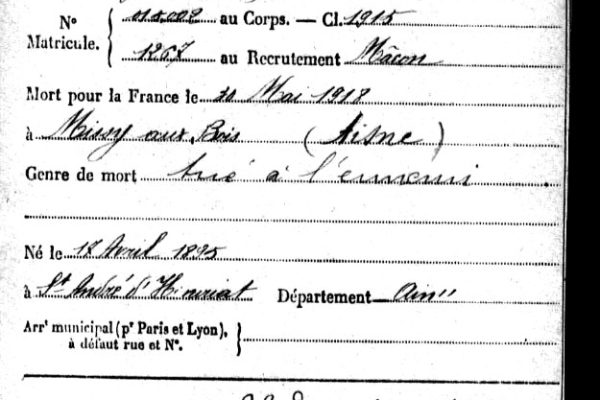 N° Matricule. { 015.002 au Corps. — Cl. 1915
1267 au Recrutement Mâcon
Mort pour la France le 30 Mai 1918
à Missy aux Bois (Aisne)
Genre de mort tué à l'ennemi
Né le 18 Avril 1895
à St André d'Huiriat Département Ain
Arrt municipal (pr Paris et Lyon), }
à défaut rue et N°.